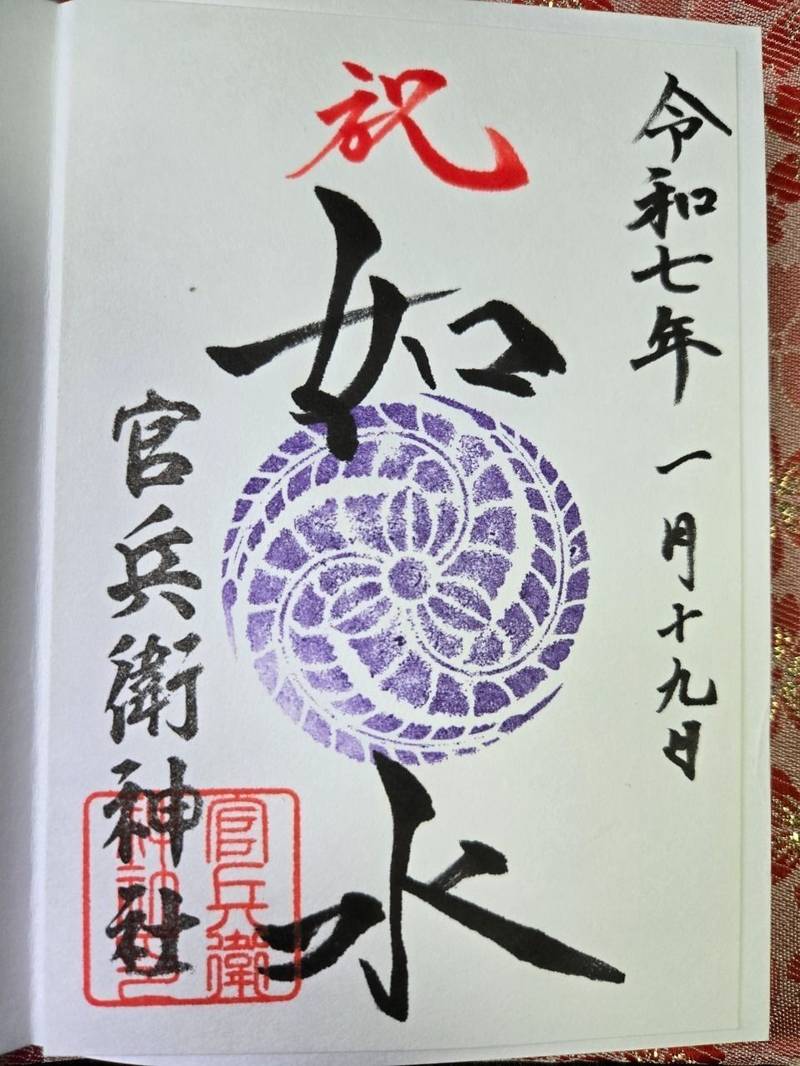 令和七年 一月十九日
祝
如水
官兵衛神社
官兵衛
神社